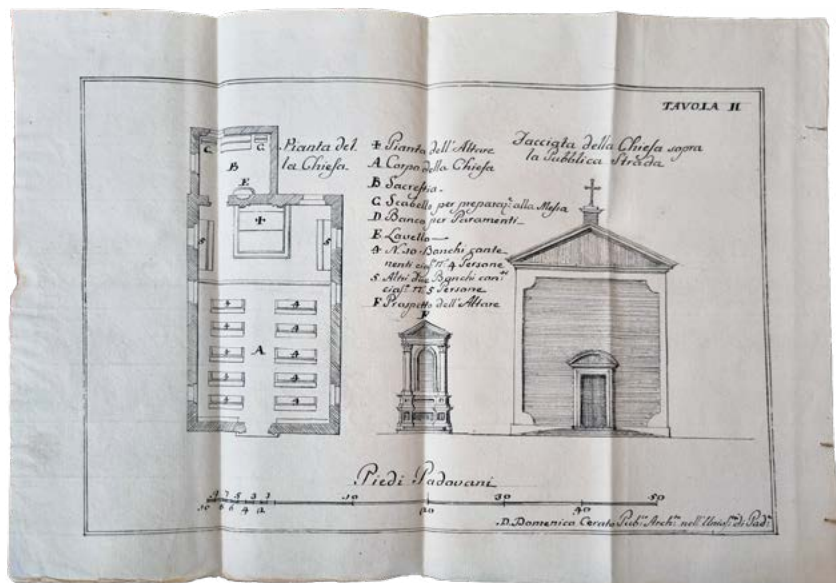 TAVOLA II
Pianta del
la Chiesa.
✝ Pianta dell'Altare
A Corpo della Chiesa
B Sacrestia.
C Scabello per preparaz.e alla Messa
D Banco per Paramenti
E Lavello
4 N. 10 Banchi conte-
nenti cias. n. 4 Persone
5 Altri due Banchi con.ti
cias. n. 5 Persone
F Prospetto dell'Altare
Facciata della Chiesa sopra
la Pubblica Strada
C C
B
E
✝
5 5
4 4
4 4
A
4 4
4 4
4 4
F
Piedi Padovani
10 20 30 40 50
D. Domenico Cerato Pub. Arch. nell'Univ. di Pad.